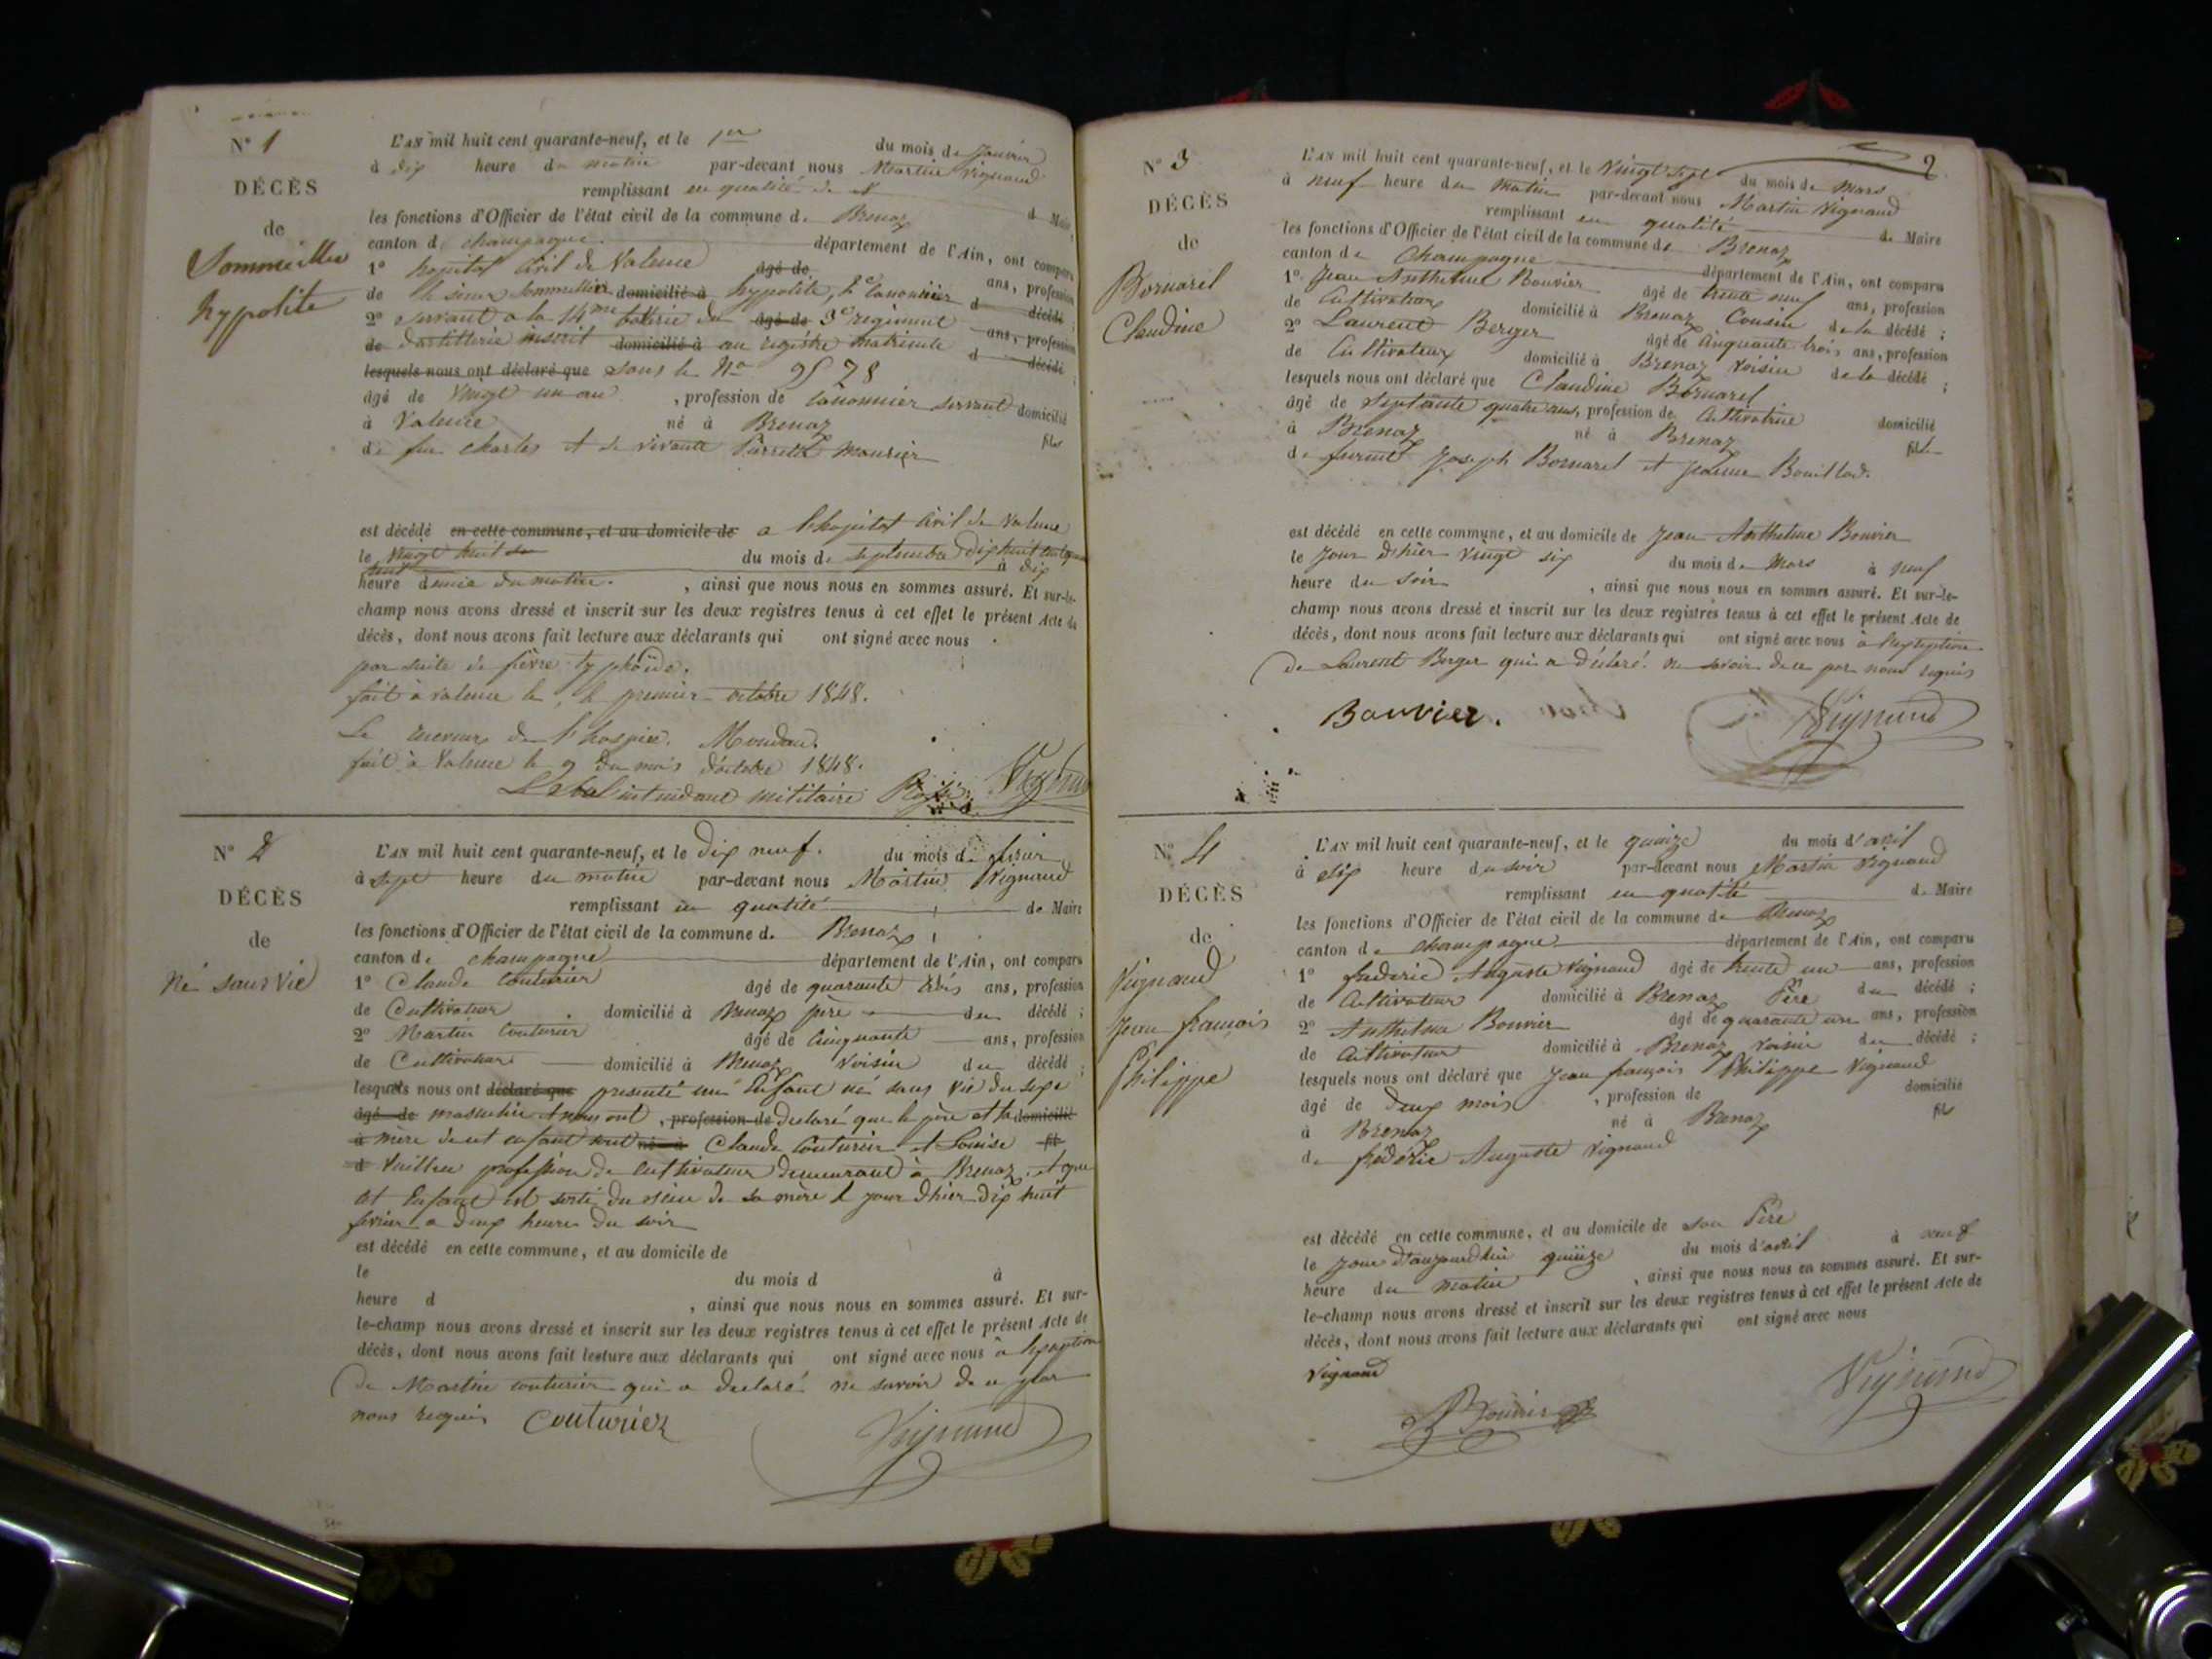 N° 1
DÉCÈS
de
Sommeillier
hypolite
L'AN mil huit cent quarante-neuf, et le 1er du mois de Janvier
à dix heure du matin par-devant nous Martin Vignaud
remplissant en qualité de d Maire
les fonctions d'Officier de l'état civil de la commune de Brenaz
canton de champagne département de l'Ain, ont comparu
1° hopital Civil de Valence âgé de ans, profession
de le sieur Sommeillier domicilié à hypolite, 2e Canonnier d décédé ;
2° servant a la 14me batterie du âgé de 3e regiment ans, profession
de d'artillerie inscrit domicilié à au registre matricule d décédé ;
lesquels nous ont déclaré que sous le No 9578
âgé de vingt un an , profession de canonnier servant domicilié
à Valence né à Brenaz fils
de feu charles et de vivante Pierrette mounier
est décédé en cette commune, et au domicile de a l'hopital Civil de Valence
le vingt huit du mois de septembre dix huit cent quarante
huit à dix
heure demie du matin. , ainsi que nous nous en sommes assuré. Et sur-le-
champ nous avons dressé et inscrit sur les deux registres tenus à cet effet le présent Acte de
décès, dont nous avons fait lecture aux déclarants qui ont signé avec nous
par suite de fièvre typhoïde.
fait à valence le, le premier octobre 1848.
Le receveur de l'hospice.
fait à Valence le 9 du mois d'octobre 1848.
intendant militaire Vignaud
N° 2
DÉCÈS
de
Né sans vie
L'AN mil huit cent quarante-neuf, et le dix neuf. du mois de fevrier
à sept heure du matin par-devant nous Martin Vignaud
remplissant en qualité de Maire
les fonctions d'Officier de l'état civil de la commune d. Brenaz
canton de champagne département de l'Ain, ont comparu
1° Claude Couturier âgé de quarante trois ans, profession
de Cultivateur domicilié à Brenaz père du décédé ;
2° Martin Couturier âgé de Cinquante ans, profession
de Cultivateur domicilié à Brenaz voisin du décédé ;
lesquels nous ont déclaré que presenté un Enfant né sans vie du sexe
âgé de masculin et nous ont , profession de declaré que le père et la domicilié
à mère de cet enfant sont né à Claude Couturier et Louise fil
d Vuillou profession de cultivateur demeurant à Brenaz, et que
cet Enfant est sorti du sein de sa mère le jour d'hier dix huit
fevrier a deux heures du soir
est décédé en cette commune, et au domicile de
le du mois d à
heure d , ainsi que nous nous en sommes assuré. Et sur-
le-champ nous avons dressé et inscrit sur les deux registres tenus à cet effet le présent Acte de
décès, dont nous avons fait lecture aux déclarants qui ont signé avec nous à l'exeption
de Martin couturier qui a declaré ne savoir de ce par
nous requis Couturier Vignaud
2
N° 3
DÉCÈS
de
Bornarel
Claudine
L'AN mil huit cent quarante-neuf, et le Vingt sept du mois de Mars
à neuf heure du Matin par-devant nous Martin Vignaud
remplissant en qualité de Maire
les fonctions d'Officier de l'état civil de la commune de Brenaz
canton de Champagne département de l'Ain, ont comparu
1° Jean Anthelme Bouvier âgé de trente neuf ans, profession
de Cultivateur domicilié à Brenaz Cousin de la décédé ;
2° Laurent Berger âgé de Cinquante trois ans, profession
de Cultivateur domicilié à Brenaz Voisin de la décédé ;
lesquels nous ont déclaré que Claudine Bornarel
âgé de septante quatre ans, profession de Cultivatrice domicilié
à Brenaz né à Brenaz fille
de furent Joseph Bornarel et Jeanne Bouillod.
est décédé en cette commune, et au domicile de Jean Anthelme Bouvier
le Jour d'hier vingt six du mois de Mars à neuf
heure du soir , ainsi que nous nous en sommes assuré. Et sur-le-
champ nous avons dressé et inscrit sur les deux registres tenus à cet effet le présent Acte de
décès, dont nous avons fait lecture aux déclarants qui ont signé avec nous à l'exeption
de Laurent Berger qui a déclaré ne savoir de ce par nous requis
Bouvier. Vignaud
N° 4
DÉCÈS
de
Vignaud
Jean françois
Philippe
L'AN mil huit cent quarante-neuf, et le quinze du mois d'avril
à six heure du soir par-devant nous Martin Vignaud
remplissant en qualité de Maire
les fonctions d'Officier de l'état civil de la commune de Brenaz
canton de champagne département de l'Ain, ont comparu
1° frederic Auguste Vignaud âgé de trente un ans, profession
de Cultivateur domicilié à Brenaz Père du décédé ;
2° Anthelme Bouvier âgé de quarante un ans, profession
de Cultivateur domicilié à Brenaz voisin du décédé ;
lesquels nous ont déclaré que Jean françois Philippe Vignaud
âgé de deux mois , profession de domicilié
à Brenaz né à Brenaz fils
de fréderic Auguste Vignaud
est décédé en cette commune, et au domicile de son Père
le Jour d'aujourd'hui quinze du mois d'avril à neuf
heure du matin , ainsi que nous nous en sommes assuré. Et sur-
le-champ nous avons dressé et inscrit sur les deux registres tenus à cet effet le présent Acte de
décès, dont nous avons fait lecture aux déclarants qui ont signé avec nous
Vignaud
Bouvier Vignaud